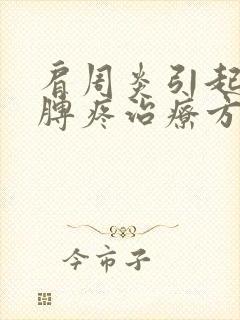 肩周炎引起
脾疼治疗方
今市子